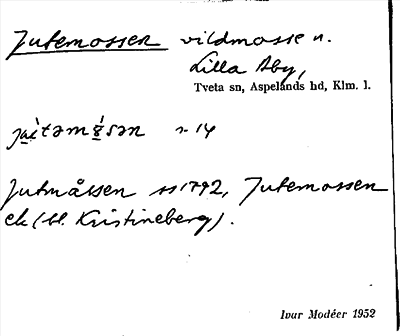 Jutemossen vildmosse n.
Lilla Aby,
Tveta sn, Aspelands hd, Klm. l.
n 14
Jutmåssen ss 1792, Jutemossen
ek (bl. Kristineberg).
Ivar Modéer 1952